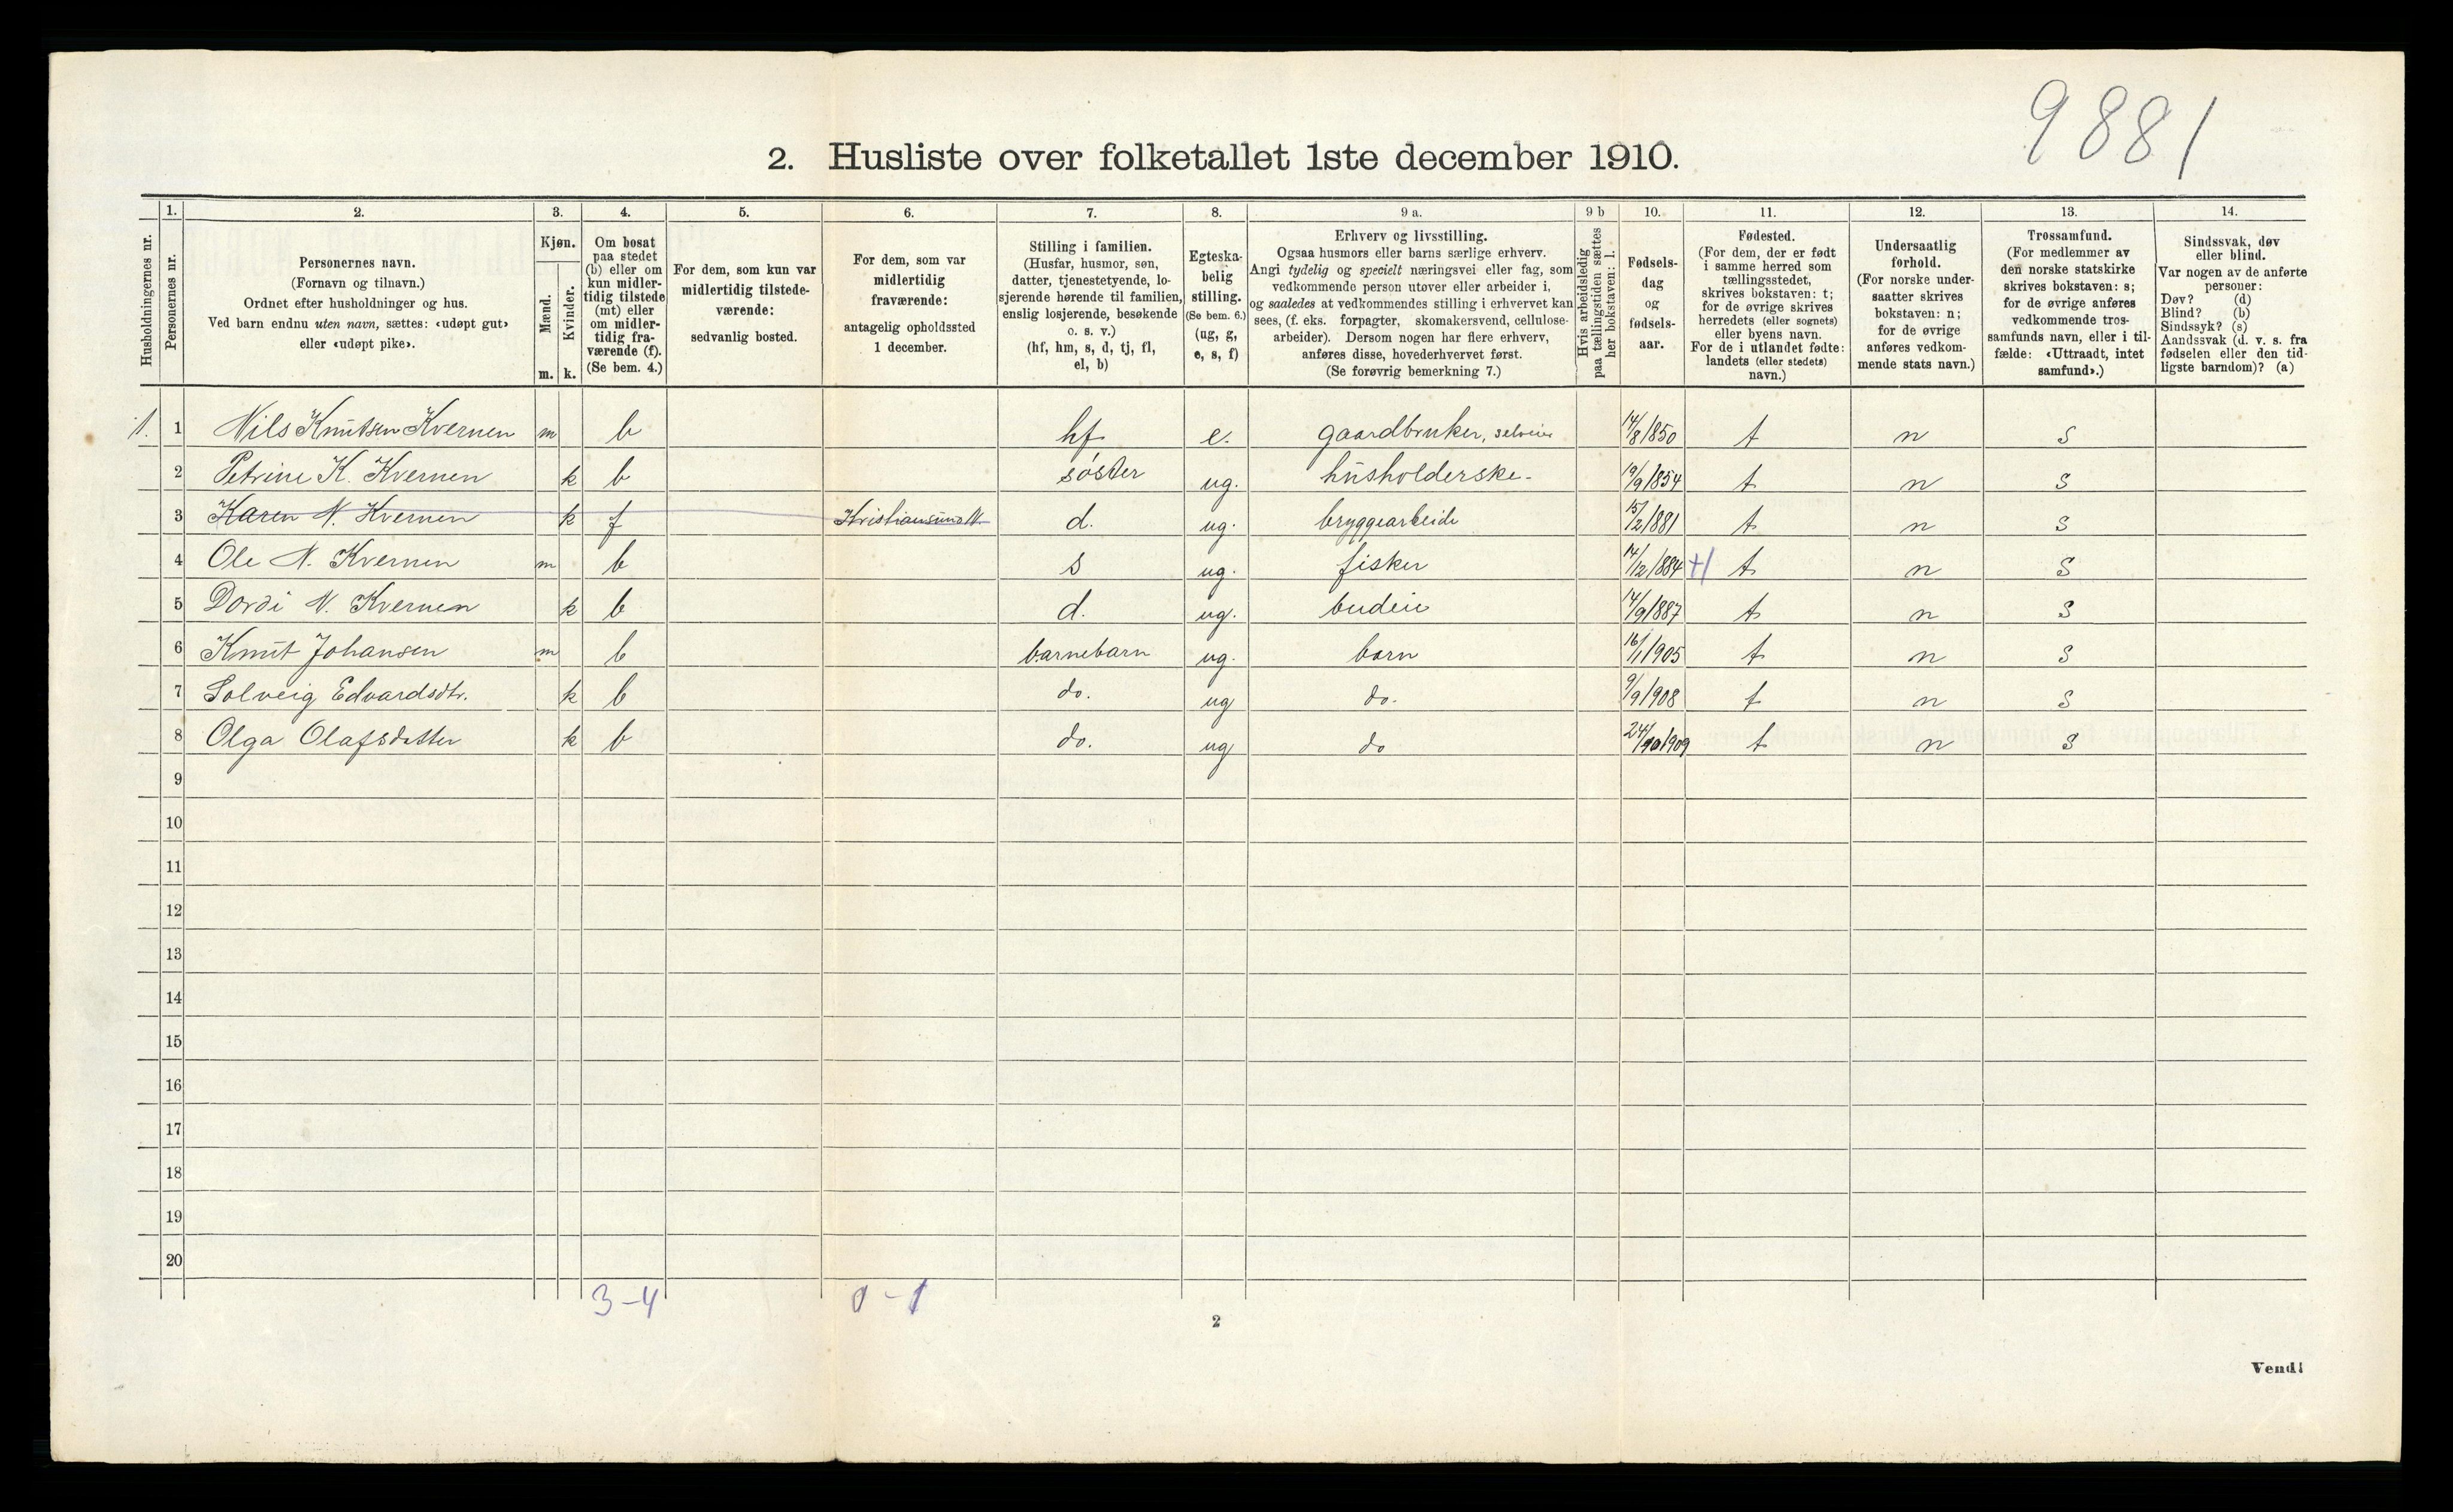 9881
2. Husliste over folketallet 1ste december 1910.
Husholdningernes nr.
1. Personernes nr.
2. Personernes navn.
(Fornavn og tilnavn.)
Ordnet efter husholdninger og hus.
Ved barn endnu uten navn, sættes: «udøpt gut»
eller «udøpt pike».
3. Kjøn.
Mænd. m.
Kvinder. k.
4. Om bosat
paa stedet
(b) eller om
kun midler-
tidig tilstede
(mt) eller
om midler-
tidig fra-
værende (f).
(Se bem. 4.)
5. For dem, som kun var
midlertidig tilstede-
værende:
sedvanlig bosted.
6. For dem, som var
midlertidig
fraværende:
antagelig opholdssted
1 december.
7. Stilling i familien.
(Husfar, husmor, søn,
datter, tjenestetyende, lo-
sjerende hørende til familien,
enslig losjerende, besøkende
o. s. v.)
(hf, hm, s, d, tj, fl,
el, b)
8. Egteska-
belig
stilling.
(Se bem. 6.)
(ug, g,
e, s, f)
9 a. Erhverv og livsstilling.
Ogsaa husmors eller barns særlige erhverv.
Angi tydelig og specielt næringsvei eller fag, som
vedkommende person utøver eller arbeider i,
og saaledes at vedkommendes stilling i erhvervet kan
sees, (f. eks. forpagter, skomakersvend, cellulose-
arbeider). Dersom nogen har flere erhverv,
anføres disse, hovederhvervet først.
(Se forøvrig bemerkning 7.)
9 b Hvis arbeidsledig
paa tællingstiden sættes
her bokstaven: l.
10. Fødsels-
dag
og
fødsels-
aar.
11. Fødested.
(For dem, der er født
i samme herred som
tællingsstedet,
skrives bokstaven: t;
for de øvrige skrives
herredets (eller sognets)
eller byens navn.
For de i utlandet fødte:
landets (eller stedets)
navn.)
12. Undersaatlig
forhold.
(For norske under-
saatter skrives
bokstaven: n;
for de øvrige
anføres vedkom-
mende stats navn.)
13. Trossamfund.
(For medlemmer av
den norske statskirke
skrives bokstaven: s;
for de øvrige anføres
vedkommende tros-
samfunds navn, eller i til-
fælde: «Uttraadt, intet
samfund».)
14. Sindssvak, døv
eller blind.
Var nogen av de anførte
personer:
Døv? (d)
Blind? (b)
Sindssyk? (s)
Aandssvak (d. v. s. fra
fødselen eller den tid-
ligste barndom)? (a)
1. 1 Nils Knutsen Kvernen m b hf e. gaardbruker, selveier 14/8 1850 t n s
2 Petrine K. Kvernen k b søster ug. husholderske- 19/9 1854 t n s
3 Karen N. Kvernen k f Kristiansund N. d. ug. bryggearbeide 15/2 1881 t n s
4 Ole N. Kvernen m b s ug. fisker 14/12 1884 t n s
5 Dordi N. Kvernen k b d. ug. budeie 14/9 1887 t n s
6 Knut Johansen m b barnebarn ug. barn 16/1 1905 t n s
7 Solveig Edvardsdtr. k b do. ug do. 9/9 1908 t n s
8 Olga Olafsdatter k b do. ug do 24/10 1909 t n s
9
10
11
12
13
14
15
16
17
18
19
20
3-4 0-1
2
Vend!